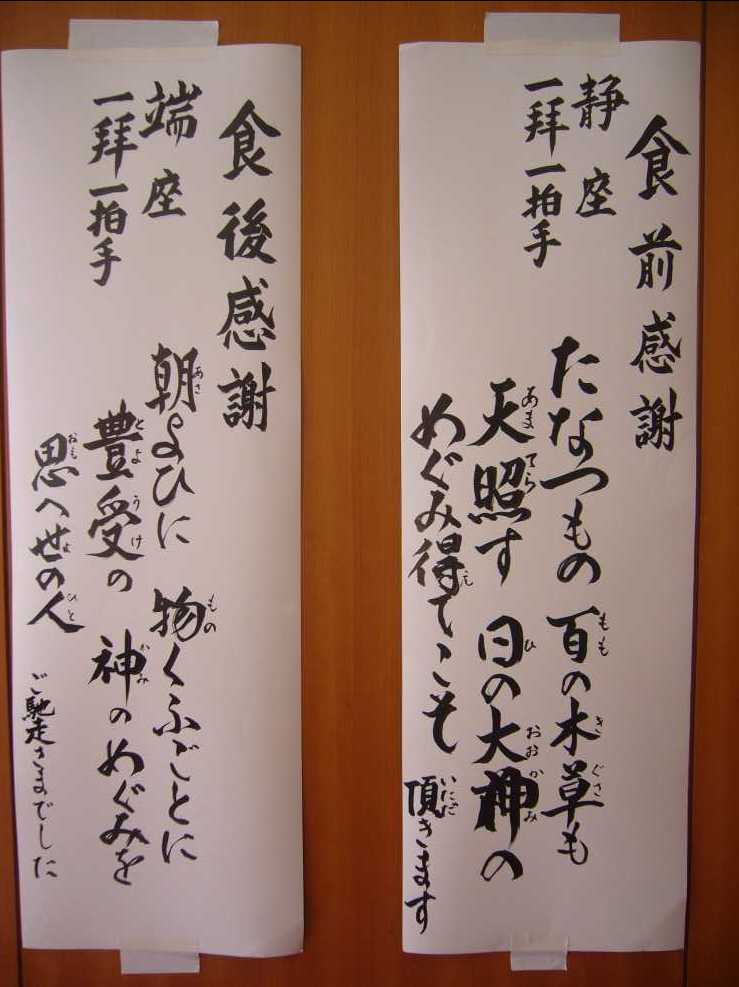 食前感謝
静座
一拝一拍手
たなつもの 百の木草も
天照す 日の大神の
めぐみ得てこそ 頂きます
食後感謝
端座
一拝一拍手
朝よひに 物くふごとに
豊受の 神のめぐみを
思へ世の人 ご馳走さまでした